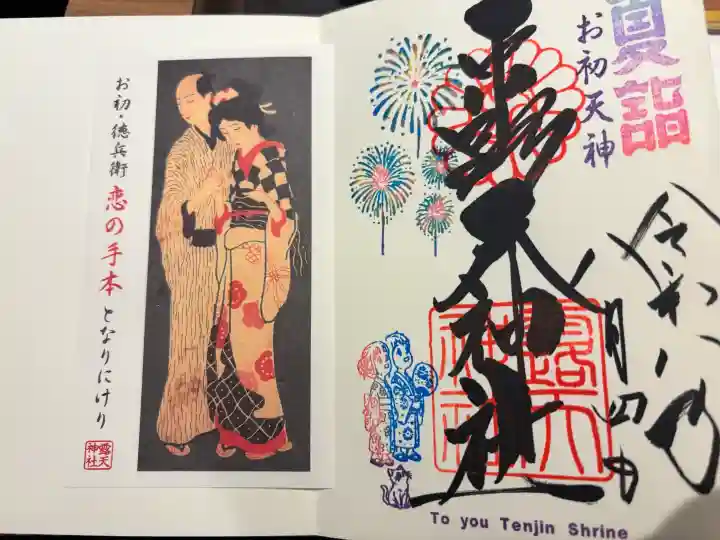 お初・徳兵衛 恋の手本 となりにけり
露天
神社
夏詣
お初天神
露天神社
令和
月四日
露天
神社
To you Tenjin Shrine